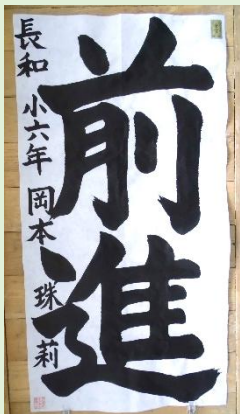 前進
長和 小六年 岡本 珠莉